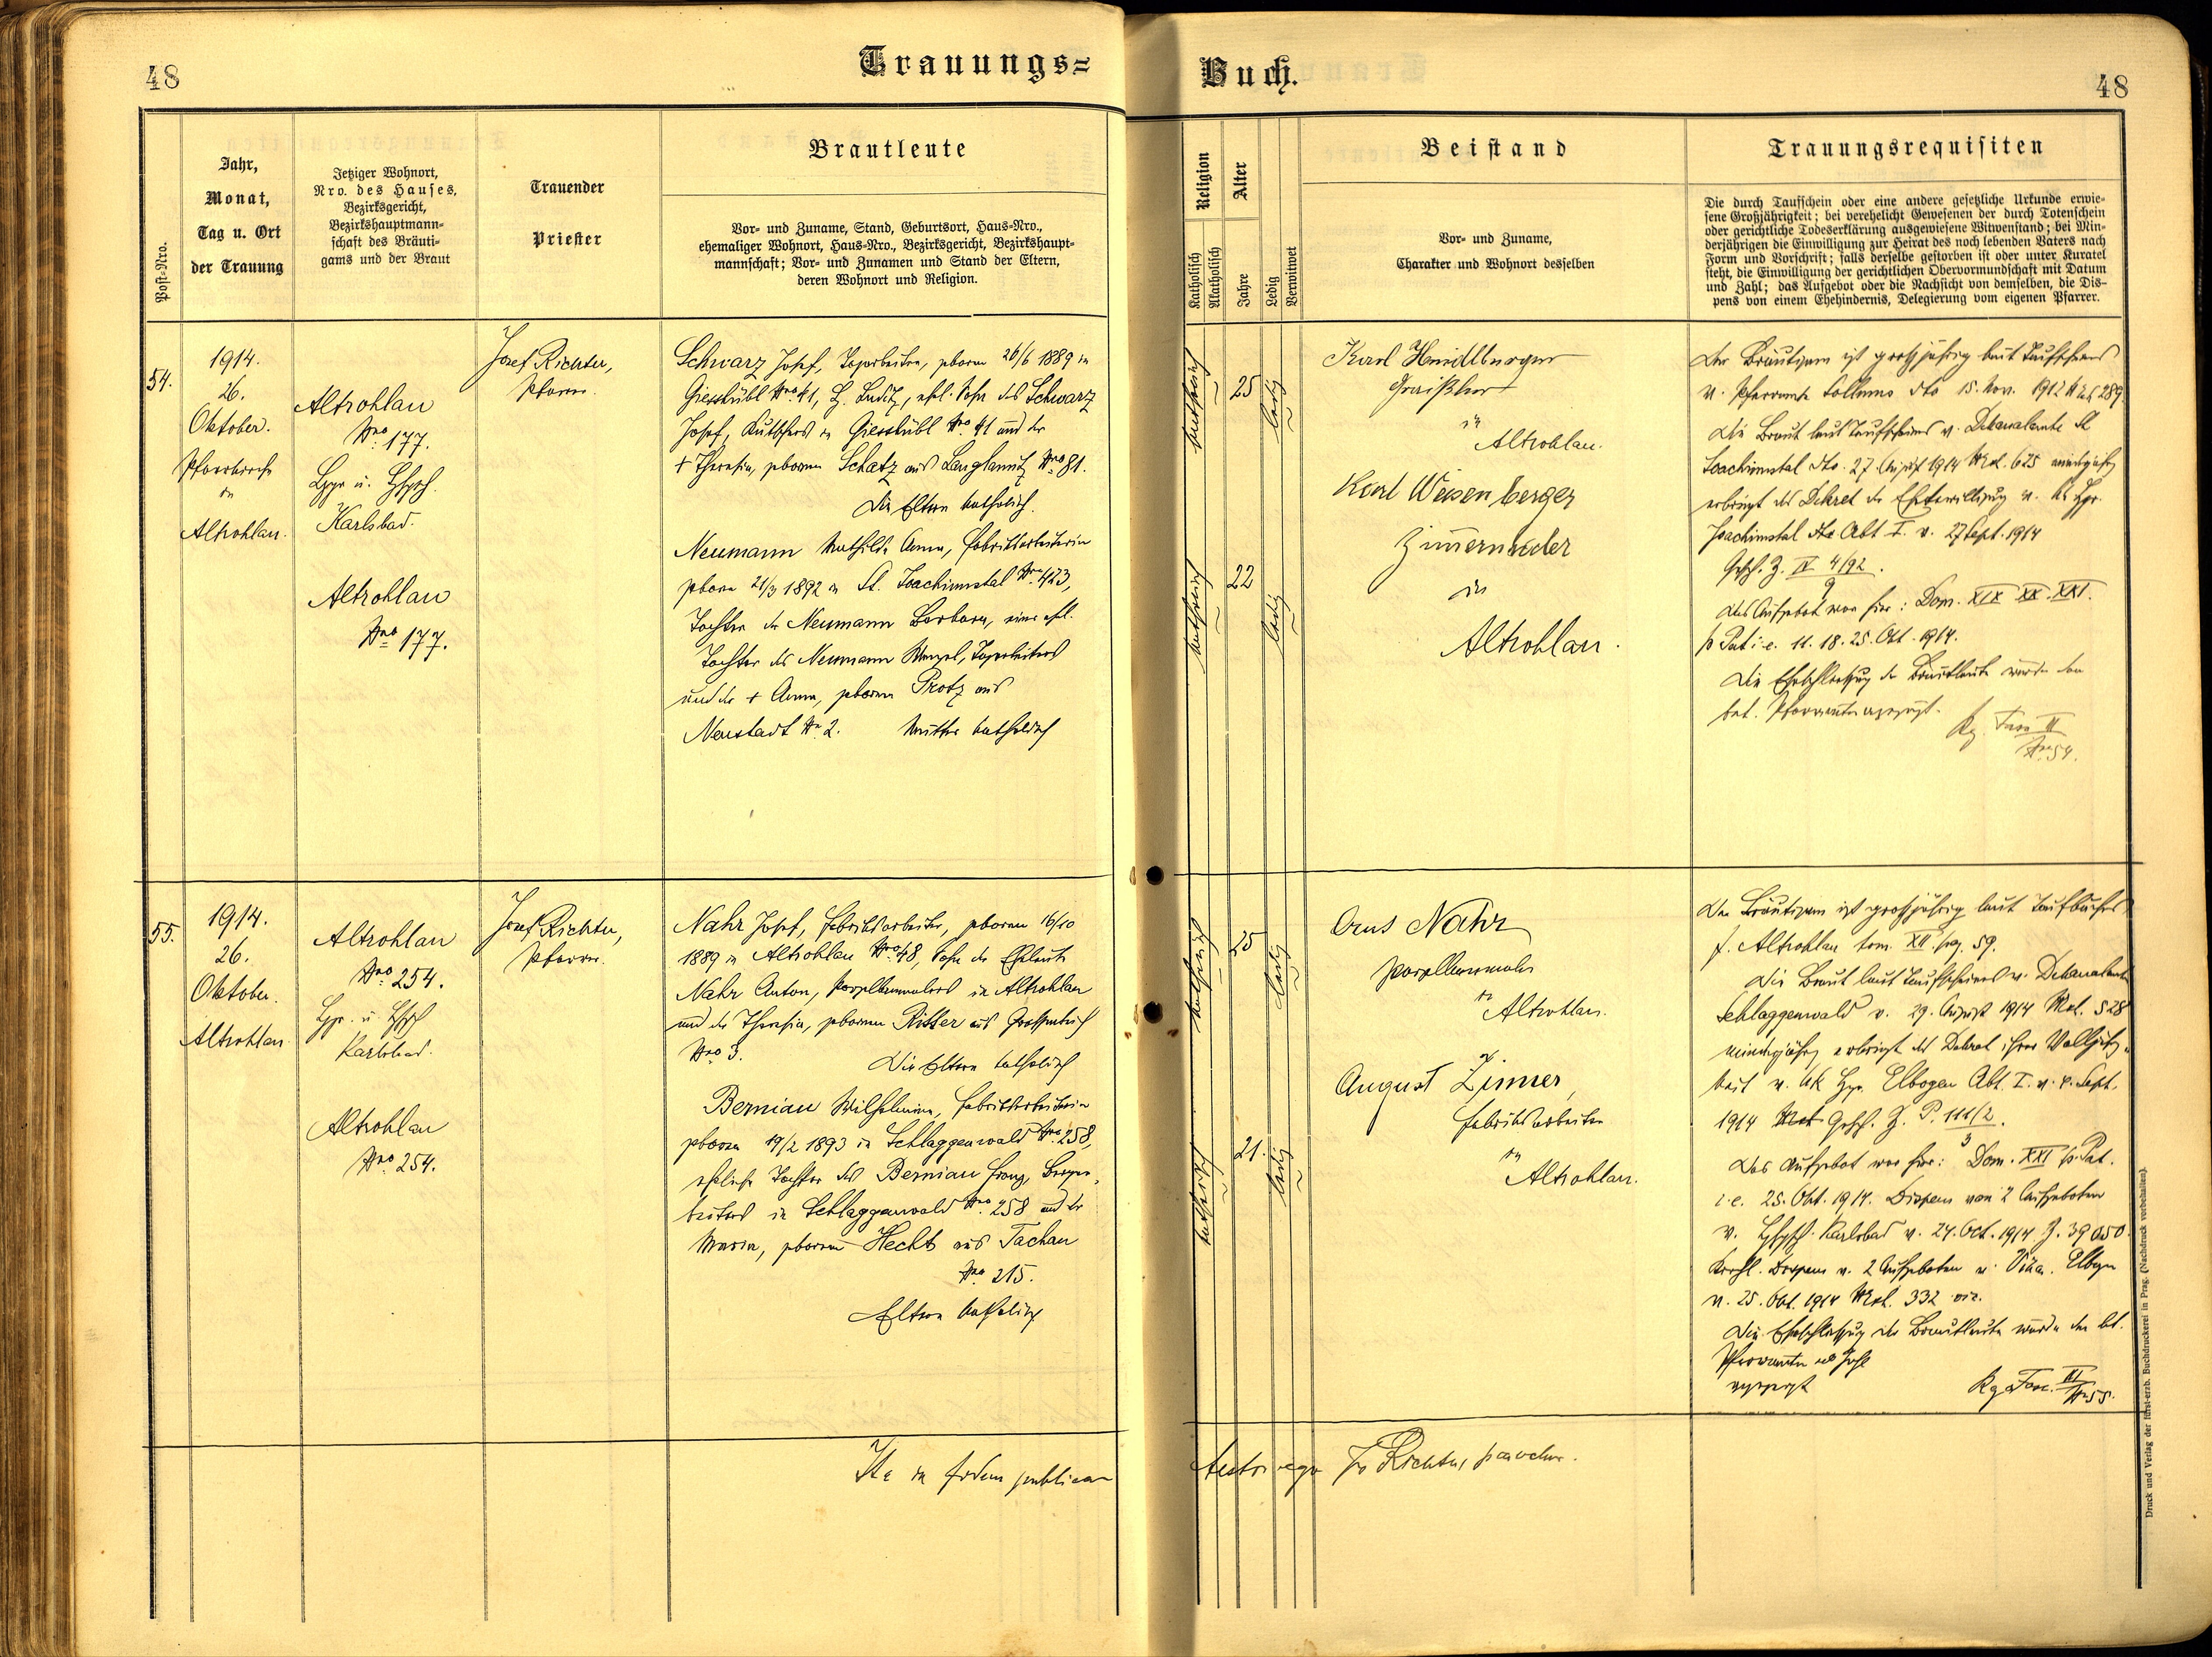 48
Trauungs=
Buch.
48
Post-Nro.
Jahr,
Monat,
Tag u. Ort
der Trauung
Jetziger Wohnort,
Nro. des Hauses,
Bezirksgericht,
Bezirkshauptmann-
schaft des Bräuti-
gams und der Braut
Trauender
Priester
Brautleute
Vor- und Zuname, Stand, Geburtsort, Haus-Nro.,
ehemaliger Wohnort, Haus-Nro., Bezirksgericht, Bezirkshaupt-
mannschaft; Vor- und Zunamen und Stand der Eltern,
deren Wohnort und Religion.
Religion
Katholisch
Akatholisch
Alter
Jahre
Ledig
Verwitwet
Beistand
Vor- und Zuname,
Charakter und Wohnort desselben
Trauungsrequisiten
Die durch Taufschein oder eine andere gesetzliche Urkunde erwie-
sene Großjährigkeit; bei verehelicht Gewesenen der durch Totenschein
oder gerichtliche Todeserklärung ausgewiesene Witwenstand; bei Min-
derjährigen die Einwilligung zur Heirat des noch lebenden Vaters nach
Form und Vorschrift; falls derselbe gestorben ist oder unter Kuratel
steht, die Einwilligung der gerichtlichen Obervormundschaft mit Datum
und Zahl; das Aufgebot oder die Nachsicht von demselben, die Dis-
pens von einem Ehehindernis, Delegierung vom eigenen Pfarrer.
54.
1914.
26.
Oktober.
Pfarrkirche
in
Altrohlau.
Altrohlau
Nro 177.
Karlsbad.
Altrohlau
Nro 177.
Josef Richter,
Pfarrer.
Schwarz Josef, geboren 26/6 1889 in
Giesshübl Nro 41, B. Luditz, ehl. Sohn des Schwarz
Josef, Kutschers in Giesshübl Nro 41 und der
+ Theresia, geborenen Schatz aus Langlamitz Nro 81.
Die Eltern katholisch.
Neumann Mathilde Anna, Fabriksarbeiterin
geboren 21/3 1892 in St. Joachimstal Nro 423,
Tochter der Neumann Barbara, einer ehl.
Tochter des Neumann Wenzel,
und der + Anna, geboren Protz aus
Neustadt No 2. Mutter katholisch
katholisch
25
ledig
katholisch
22
ledig
Karl
in
Altrohlau.
Karl Weisenberger
in
Altrohlau.
Der Bräutigam ist großjährig laut Taufscheins
v. Pfarramte dto 15. Nov. 1912 289
Die Braut laut Taufscheins v. Dekanalamte St
Joachimstal dto. 27. August 1914 675 minderjährig
erbringt das Dekret der Ehebewilligung v.
Joachimstal Abt I. v. 27 Sept. 1914
IV 4/92.
9
Das Aufgebot war hier: Dom. XIX XX. XXI.
p. Pat i. e. 11. 18. 25. Okt. 1914.
Die Eheschließung der Brautleute wurde den
bet. Pfarrämtern angezeigt.
No 54.
55.
1914.
26.
Oktober.
Altrohlau
Altrohlau
Nro 254.
Karlsbad.
Altrohlau
Nro 254.
Josef Richter,
Pfarrer.
Nahr Josef, Fabriksarbeiter, geboren 16/10
1889 in Altrohlau Nro 48, Sohn der Eheleute
Nahr Anton, Porzellanmalers in Altrohlau
und der Theresia, geborenen Ritter aus
Nro 3. Die Eltern katholisch
Berniau Wilhelmine, Fabriksarbeiterin
geboren 19/2 1893 in Schlaggenwald Nro 258,
eheliche Tochter des Berniau Franz,
in Schlaggenwald Nro 258 und der
Maria, geborenen Hecht aus Tachau
Nro 215.
Eltern katholisch
katholisch
25
ledig
katholisch
21.
ledig
Nahr
Porzellanmaler
in
Altrohlau.
August Zimmer,
Fabriksarbeiter
in
Altrohlau.
Der Bräutigam ist großjährig laut Taufbuches
f. Altrohlau tom. XII. pag. 59.
Die Braut laut Taufscheines v. Dekanalamte
Schlaggenwald v. 29. August 1914 528
minderjährig erbringt das Dekret ihrer Volljährig-
keit v. Elbogen Abt. I. v. Sept.
1914 P. 111/2.
3
Das Aufgebot war hier: Dom. XXI p. Pat.
i. e. 25. Okt. 1914. Dispens von 2 Aufgeboten
v. Karlsbad v. 24. Oct. 1914 Z. 39050.
Kirchl. Dispens v. 2 Aufgeboten v. Elbogen
v. 25. Okt. 1914 332
Die Eheschließung der Brautleute wurde den bet.
Pfarrämtern
angezeigt
No 55.
Ita in fidem publicam
testor ego Jos Richter, parochus.
Druck und Verlag der fürst-erzb. Buchdruckerei in Prag. (Nachdruck vorbehalten).